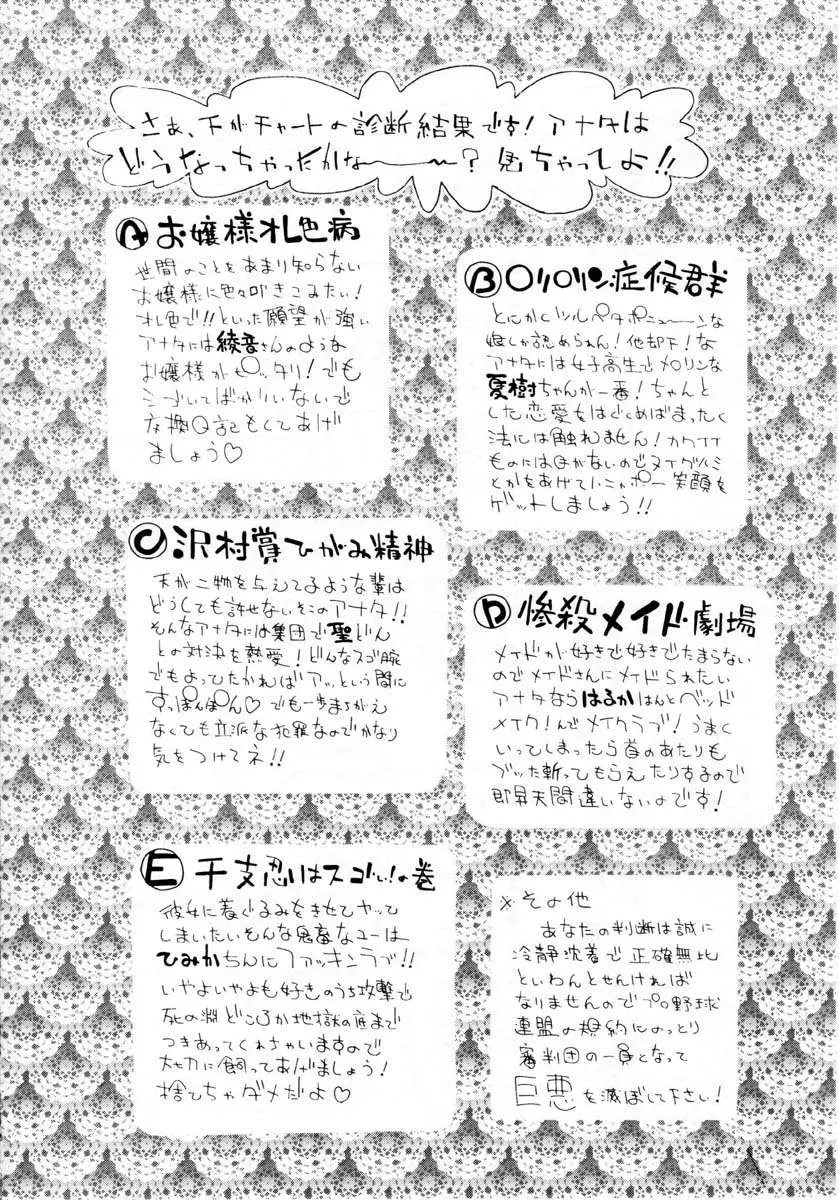 さぁ、下がチャートの診断結果です！アナタは
どうなっちゃったかな〜？見ちゃってしょ!!
A お嬢様オレ色病
世間のことをあまり知らない
お嬢様に色々叩きこみたい！
オレ色で!!といった願望が強い
アナタには綾音さんのような
お嬢様がピッタリ！でも
いないで
交換日記もしてあげ
ましょう♡
B ○リ○リン症候群
とにかくツルペタポニューンな
娘しか認められん！他却下！な
アナタには女子高生でメロリンな
夏樹ちゃんが一番！ちゃんと
した恋愛をはぐくめばまったく
法には触れません！カワイイ
ものには目がないのでヌイグルミ
とかをあげて 笑顔を
ゲットしましょう!!
C 沢村賞ひがみ精神
天が二物を与えてるような輩は
どうしても許せないそこのアナタ!!
そんなアナタには集団で聖どん
との対決を熱愛！どんなスゴ腕
でもよってたかればアッという間に
すっぽんぽん♡でも一歩まちがえ
なくても立派な犯罪なのでかなり
気をつけてネ!!
D 惨殺メイド劇場
メイドが好きで好きでたまらない
のでメイドさんにメイドられたい
アナタならはるかはんとベッド
メイク！んでメイクラブ！うまく
いってしまったら首のあたりも
ブッた斬ってもらえたりするので
即昇天間違いないのです！
E 干支忍りはスゴい！の巻
彼女に着ぐるみをきせてヤッて
しまいたいそんな鬼畜なユーは
ひみかちんにファッキンラブ!!
いやよいやよも好きのうち攻撃で
死の淵どころか地獄の底まで
つきあってくれちゃいますので
大切に飼ってあげましょう！
捨てちゃダメだよ♡
※その他
あなたの判断は誠に
冷静沈着で正確無比
といわんとせんければ
なりませんのでプロ野球
連盟の規約にのっとり
審判団の一員となって
巨悪を滅ぼして下さい！